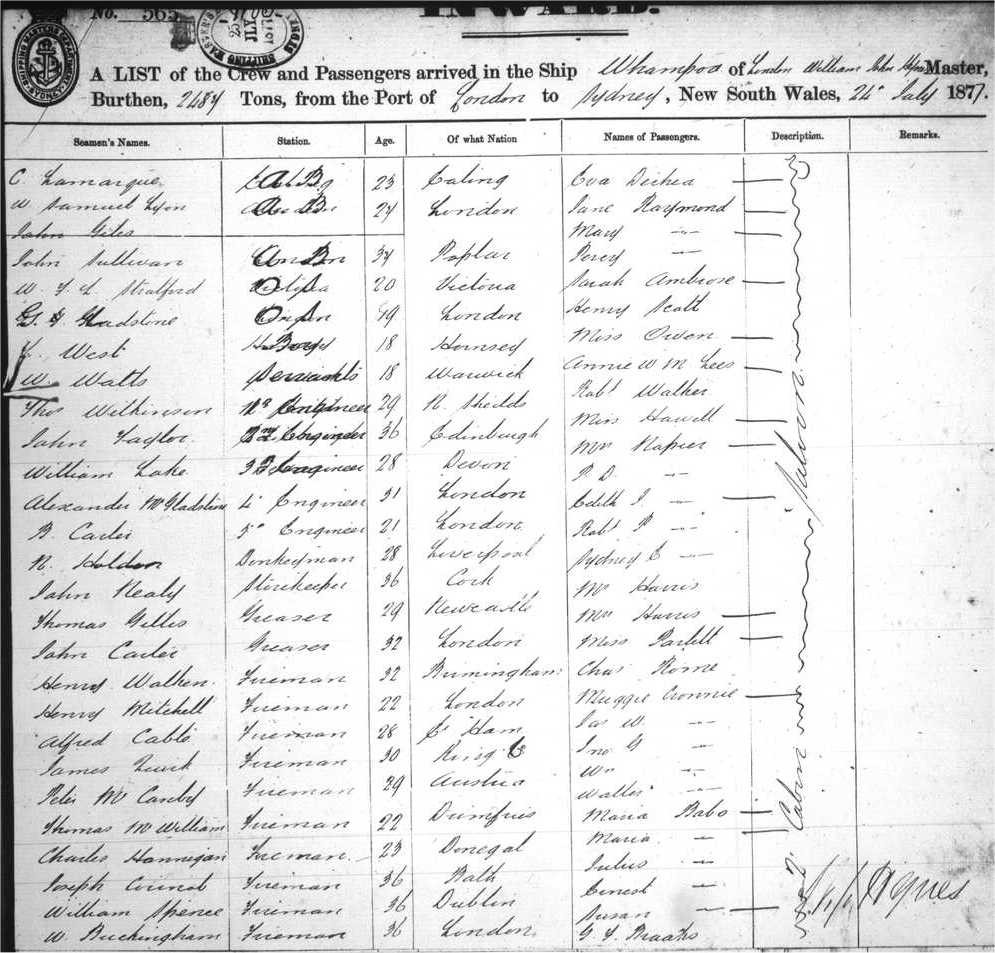 INWARD.
No. 565
A LIST of the Crew and Passengers arrived in the Ship Whampoa of London William John Master,
Burthen, 2484 Tons, from the Port of London to Sydney, New South Wales, 24 July 1877.
Seamen's Names. Station. Age. Of what Nation Names of Passengers. Description. Remarks.
C. Lamarque A B 23 Ealing Eva
W. Samuel Lyon A B 24 London Jane Raymond
John Giles Mary -"-
John Sullivan A B 34 Poplar Percy -"-
W. F. L. Stratford O S 20 Victoria Sarah Ambrose
G. Gladstone O S 19 London Henry Scott
West Boy 18 Hornsey Miss Owen
W. Watts Servants 18 Warwick Annie W M Lees
Thos Wilkinson Engineer 29 N. Shields Robt Walker
John Taylor 2nd Engineer 36 Edinburgh Miss Howell
William Lake 3d Engineer 28 Devon Mrs Napier
Alexander McGladstone 4 Engineer 31 London P. D. -"-
B. Carter 5 Engineer 21 London Edith -"-
R. Holdon Donkeyman 28 Liverpool Robt -"-
John Nealy Storekeeper 36 Cork Sydney C -"-
Thomas Gillis Greaser 29 Newcastle Mr Harris
John Carter Greaser 32 London Mrs Harris
Henry Walken Fireman 32 Birmingham Miss Partlett
Henry Mitchell Fireman 22 London Chas Rome
Alfred Cable Fireman 28 E. Ham Maggie
James Fireman 30 Jas W. -"-
Peter Fireman 29 Austria Jno G -"-
Thomas McWilliam Fireman 22 Dumfries Wm -"-
Charles Hannigan Fireman 23 Donegal Walter -"-
Joseph Fireman 36 Bath Maria Babo
William Spence Fireman 36 Dublin Maria -"-
W. Buckingham Fireman 36 London Julius -"-
Ernest -"-
Susan -"-
Cabin
Saloon